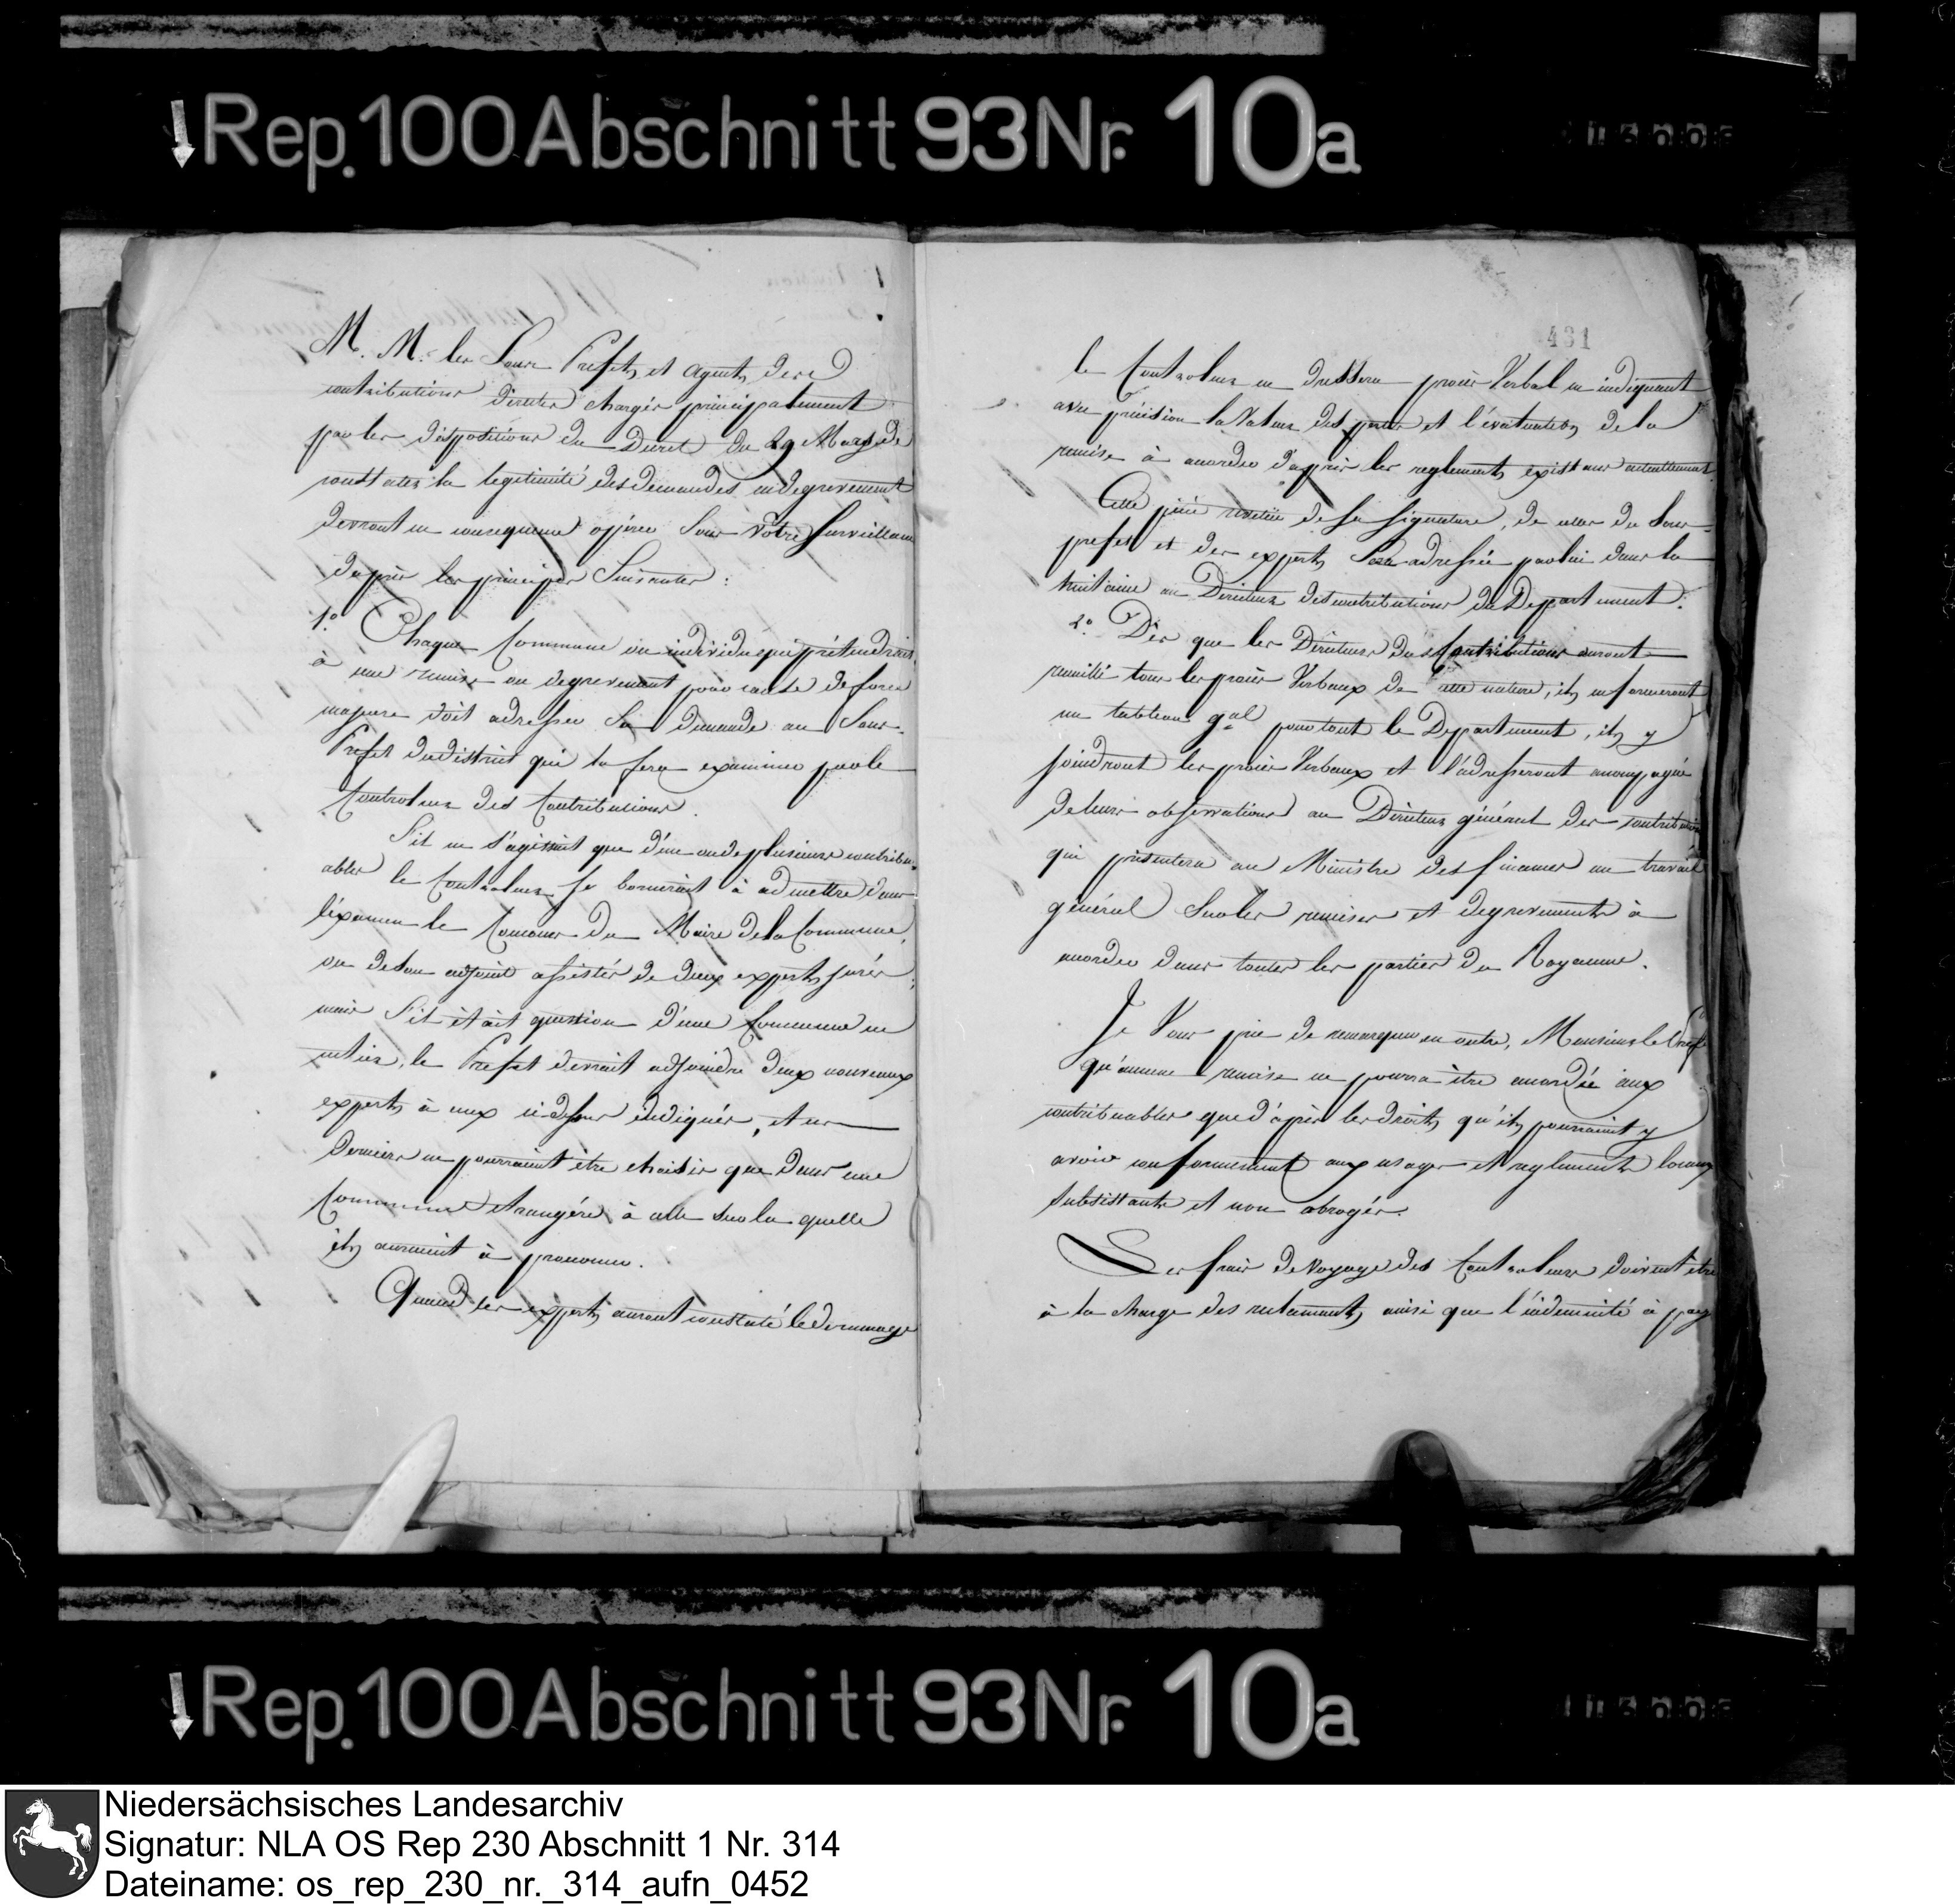 Rep. 100 Abschnitt 93 Nr. 10a
M. M. les Sous Prefets et agents des
contributions directes chargés principalement
par les dispositions du Décret du 29 Mars de
constater la legitimité des demandes en degrevement
devront en consequence opérer sous votre surveillance
d'après les principes Suivantes :
1.° Chaque Commune ou individu qui prétendrait
à une remise ou degrevement pour cause de force
majeure doit adresser sa demande au Sous-
Prefet du district qui la fera examiner par le
Controleur des Contributions.
S'il ne s'agissait que d'un ou de plusieurs contribu-
ables le Controleur se bornerait à admettre dans
l'éxamen le Concours du Maire de la Commune,
ou de son adjoint assistés de deux experts jurés ;
mais s'il était question d'une Commune en
entier, le Prefet devrait adjoindre deux nouveaux
experts à ceux ci-dessus indiqués, et ces
derniers ne pourraient être choisis que dans une
Commune etrangére à celle sur la quelle
ils auraient à prononcer.
Quand les experts auront constaté le dommage
431
le Controleur en dressera procès Verbal en indiquant
avec précision la Valeur des pertes et l'évaluation de la
remise à accorder d'après les reglements existans actuellement.
Cette pièce revetüe de sa signature, de celles du Sous-
prefet et des experts sera adressée par lui dans la
huitaine au Directeur des contributions du Departement.
2.° Dès que les Directeurs des Contributions auront
recueilli tous les procès Verbaux de cette nature, ils en formeront
un tableau gal pour tout le Departement, ils y
joindront les procès Verbaux et l'adresseront accompagné
de leurs observations au Directeur général des contributions
qui présentera au Ministre des finances un travail
général sur les remises et degrevements à
accorder dans toutes les parties du Royaume.
Je Vous prie de remarquer en outre, Monsieur le Prefet
qu'aucune remise ne pourra être accordée aux
contribuables que d'après les droits qu'ils pourraient y
avoir conformement aux usages et reglements locaux
subsistants et non abrogés.
Les frais de voyage des Controleurs doivent être
à la charge des reclamants, ainsi que l'indemnité à pay
Rep. 100 Abschnitt 93 Nr. 10a
Niedersächsisches Landesarchiv
Signatur: NLA OS Rep 230 Abschnitt 1 Nr. 314
Dateiname: os_rep_230_nr._314_aufn_0452